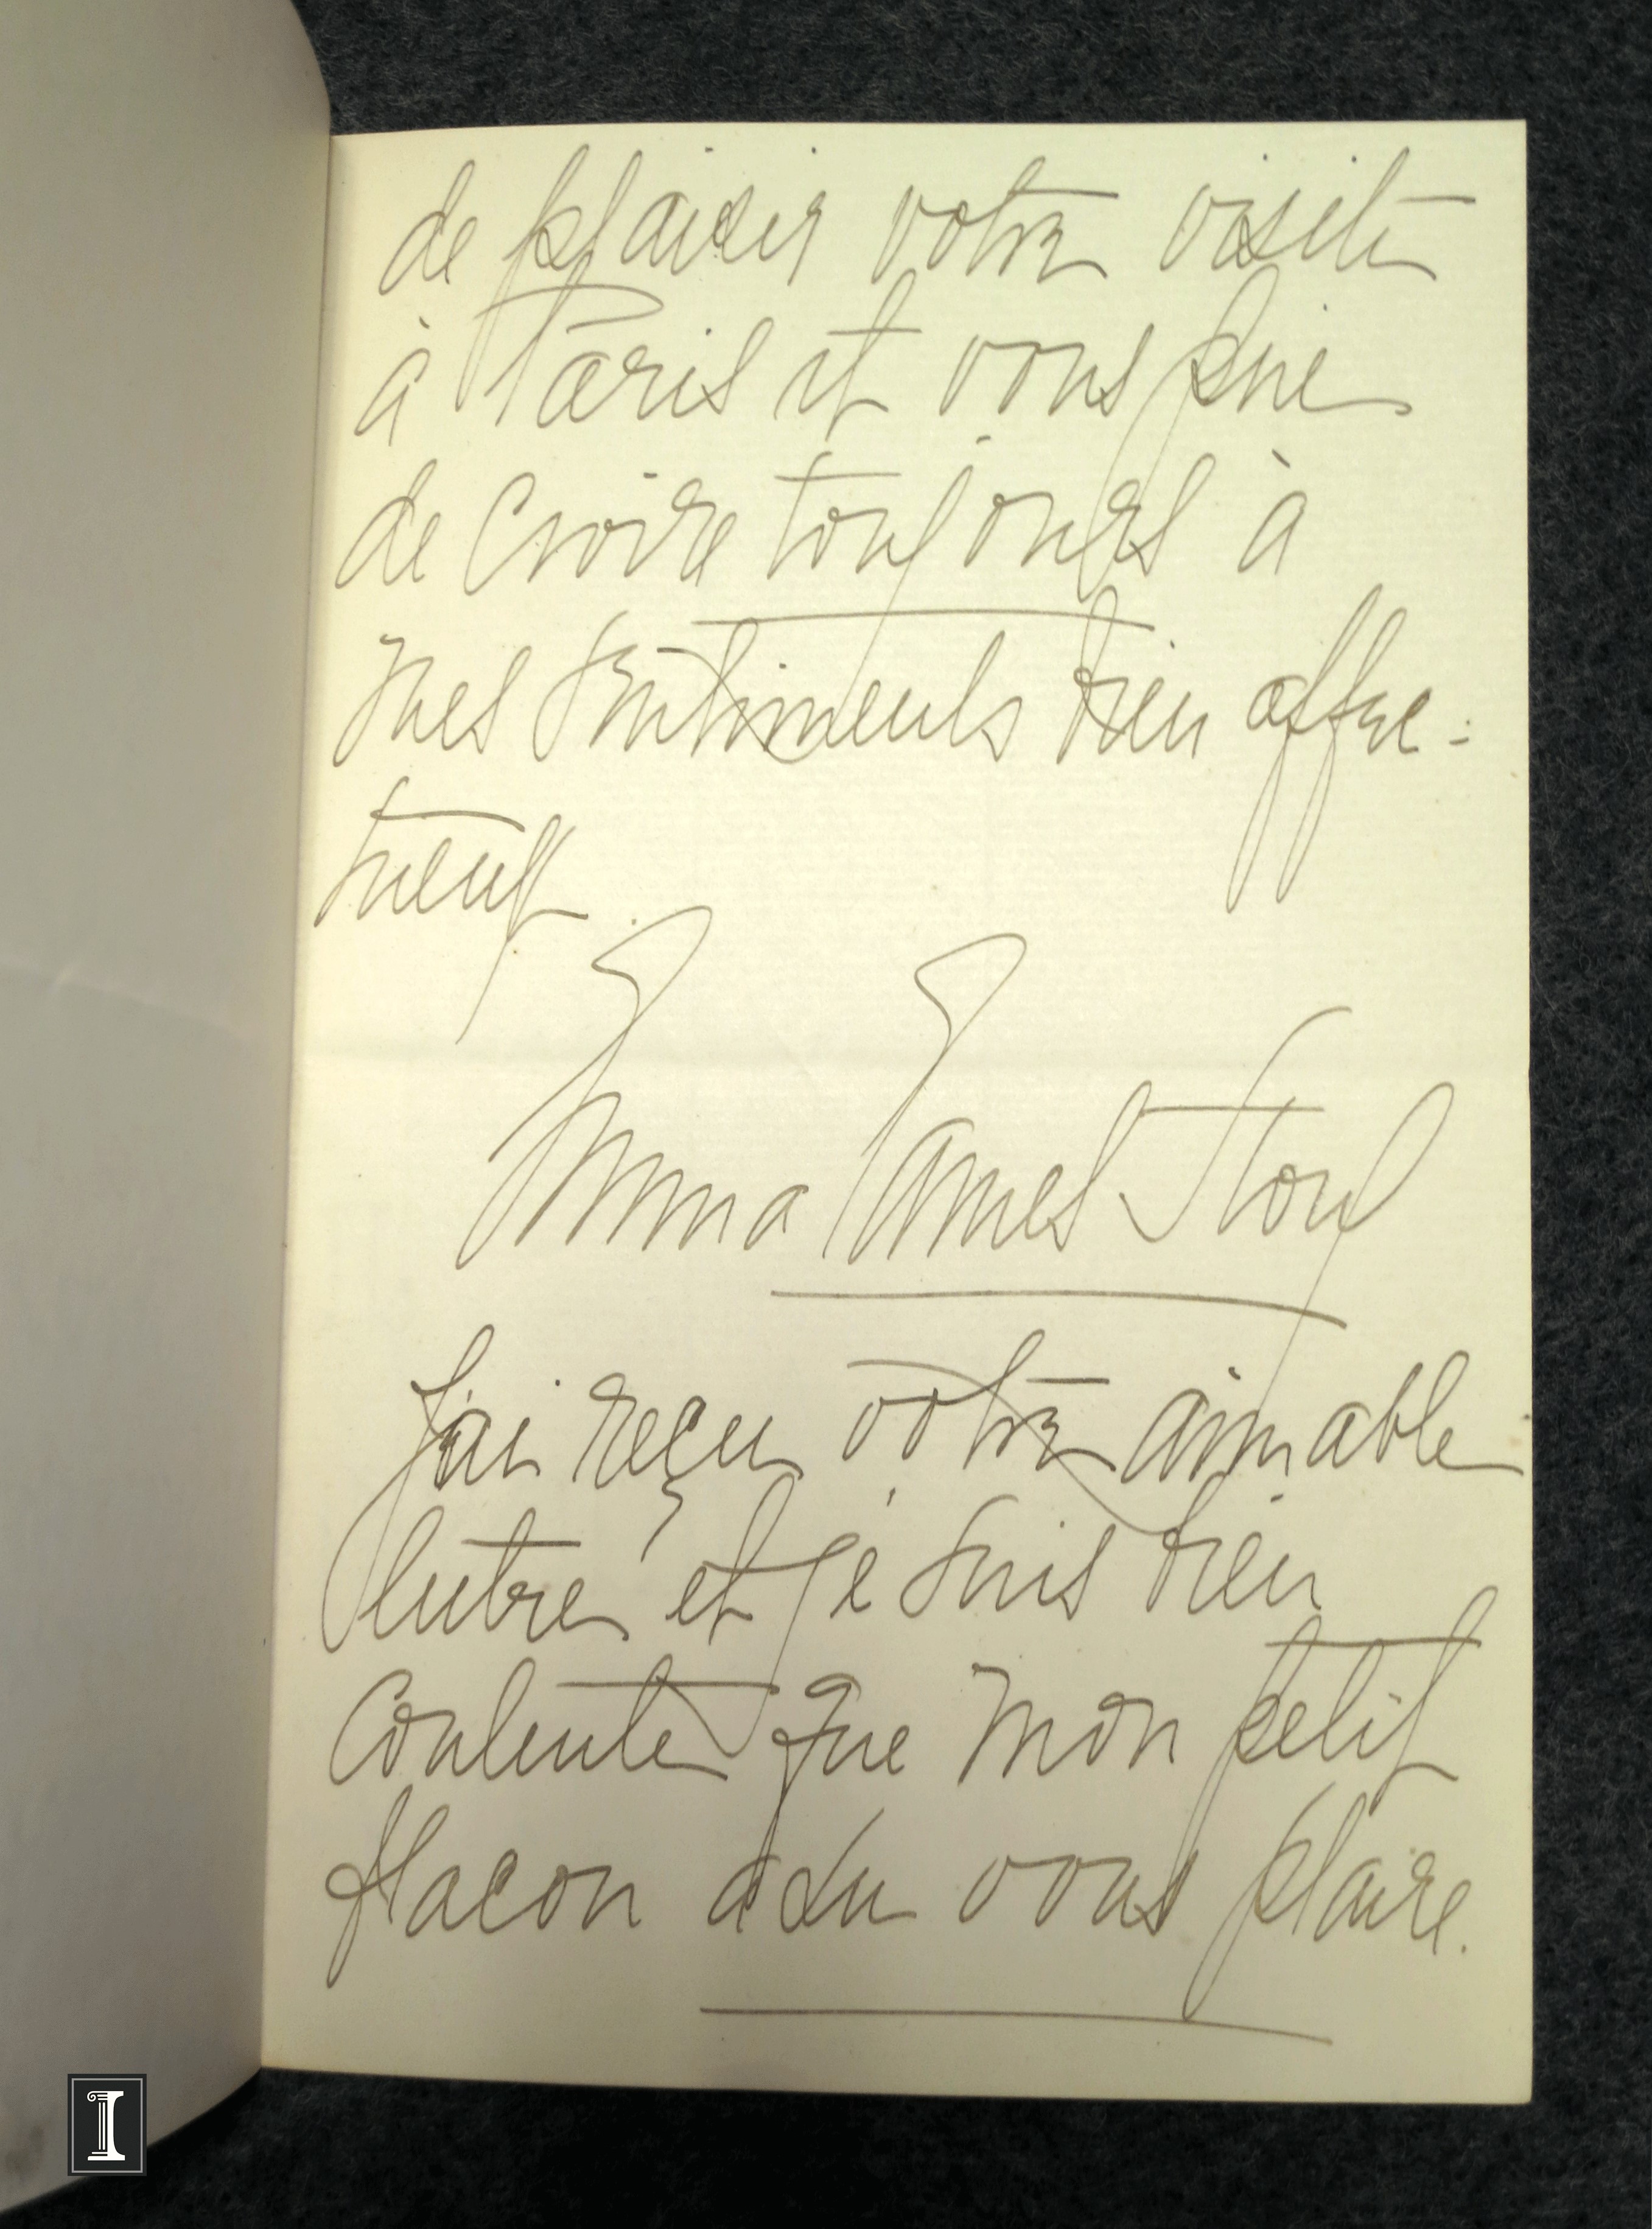 de plaisir votre visite
à Paris et vous prie
de croire toujours à
mes sentiments bien affec-
tueux
Emma Eames Story
J'ai reçu votre aimable
lettre et je suis bien
contente que mon petit
flacon a du vous plaire.
I